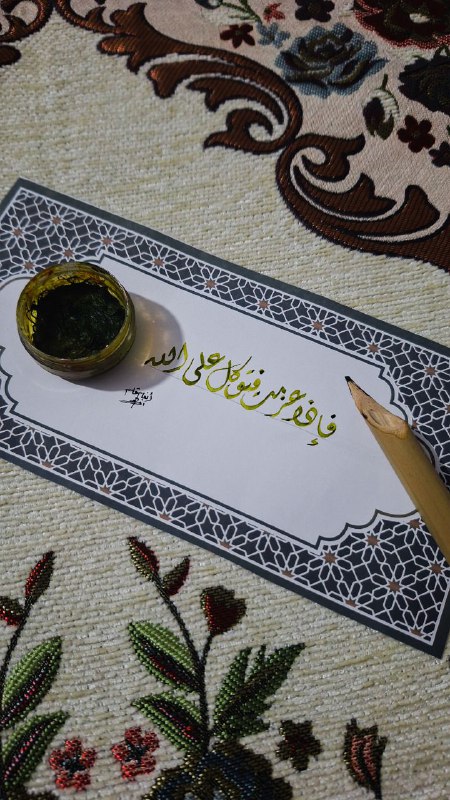 فإذا عزمت فتوكل على الله